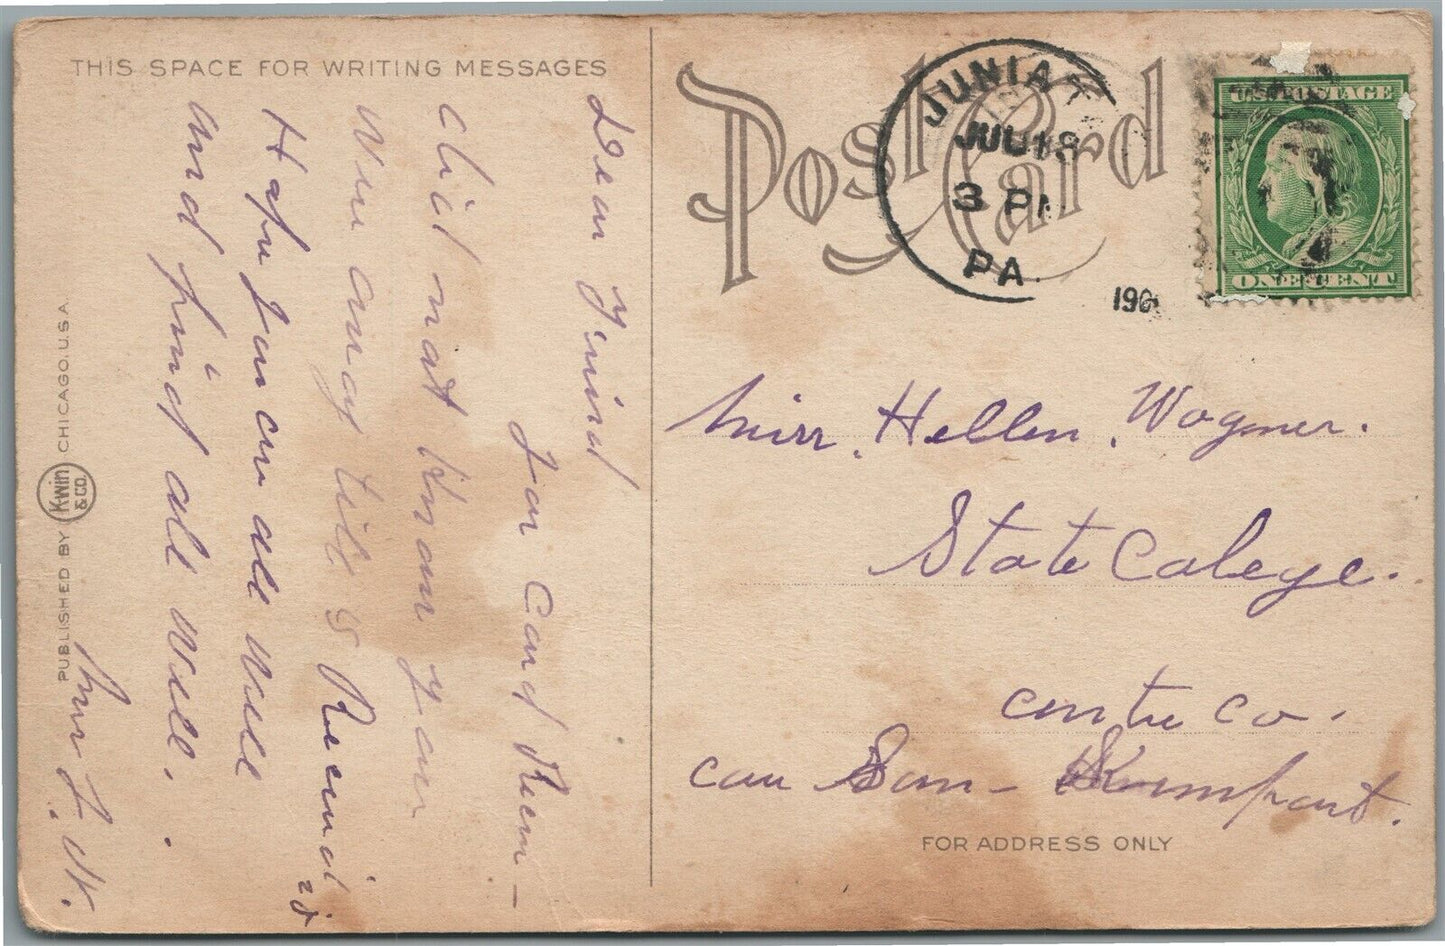 THIS SPACE FOR WRITING MESSAGES
Dear Frind
your Card Reem-
chid not know your
Were away till I Receivd
it
Hope you are all well
and find all well.
L. W.
PUBLISHED BY Kwin & CO. CHICAGO. U.S.A
Post Card
JUNIAT
JUL 18
3 PM
PA.
190
U.S. POSTAGE
ONE CENT
Miss. Hellen. Wagner.
State Colege.
Centre Co.
Cau Sam-
FOR ADDRESS ONLY